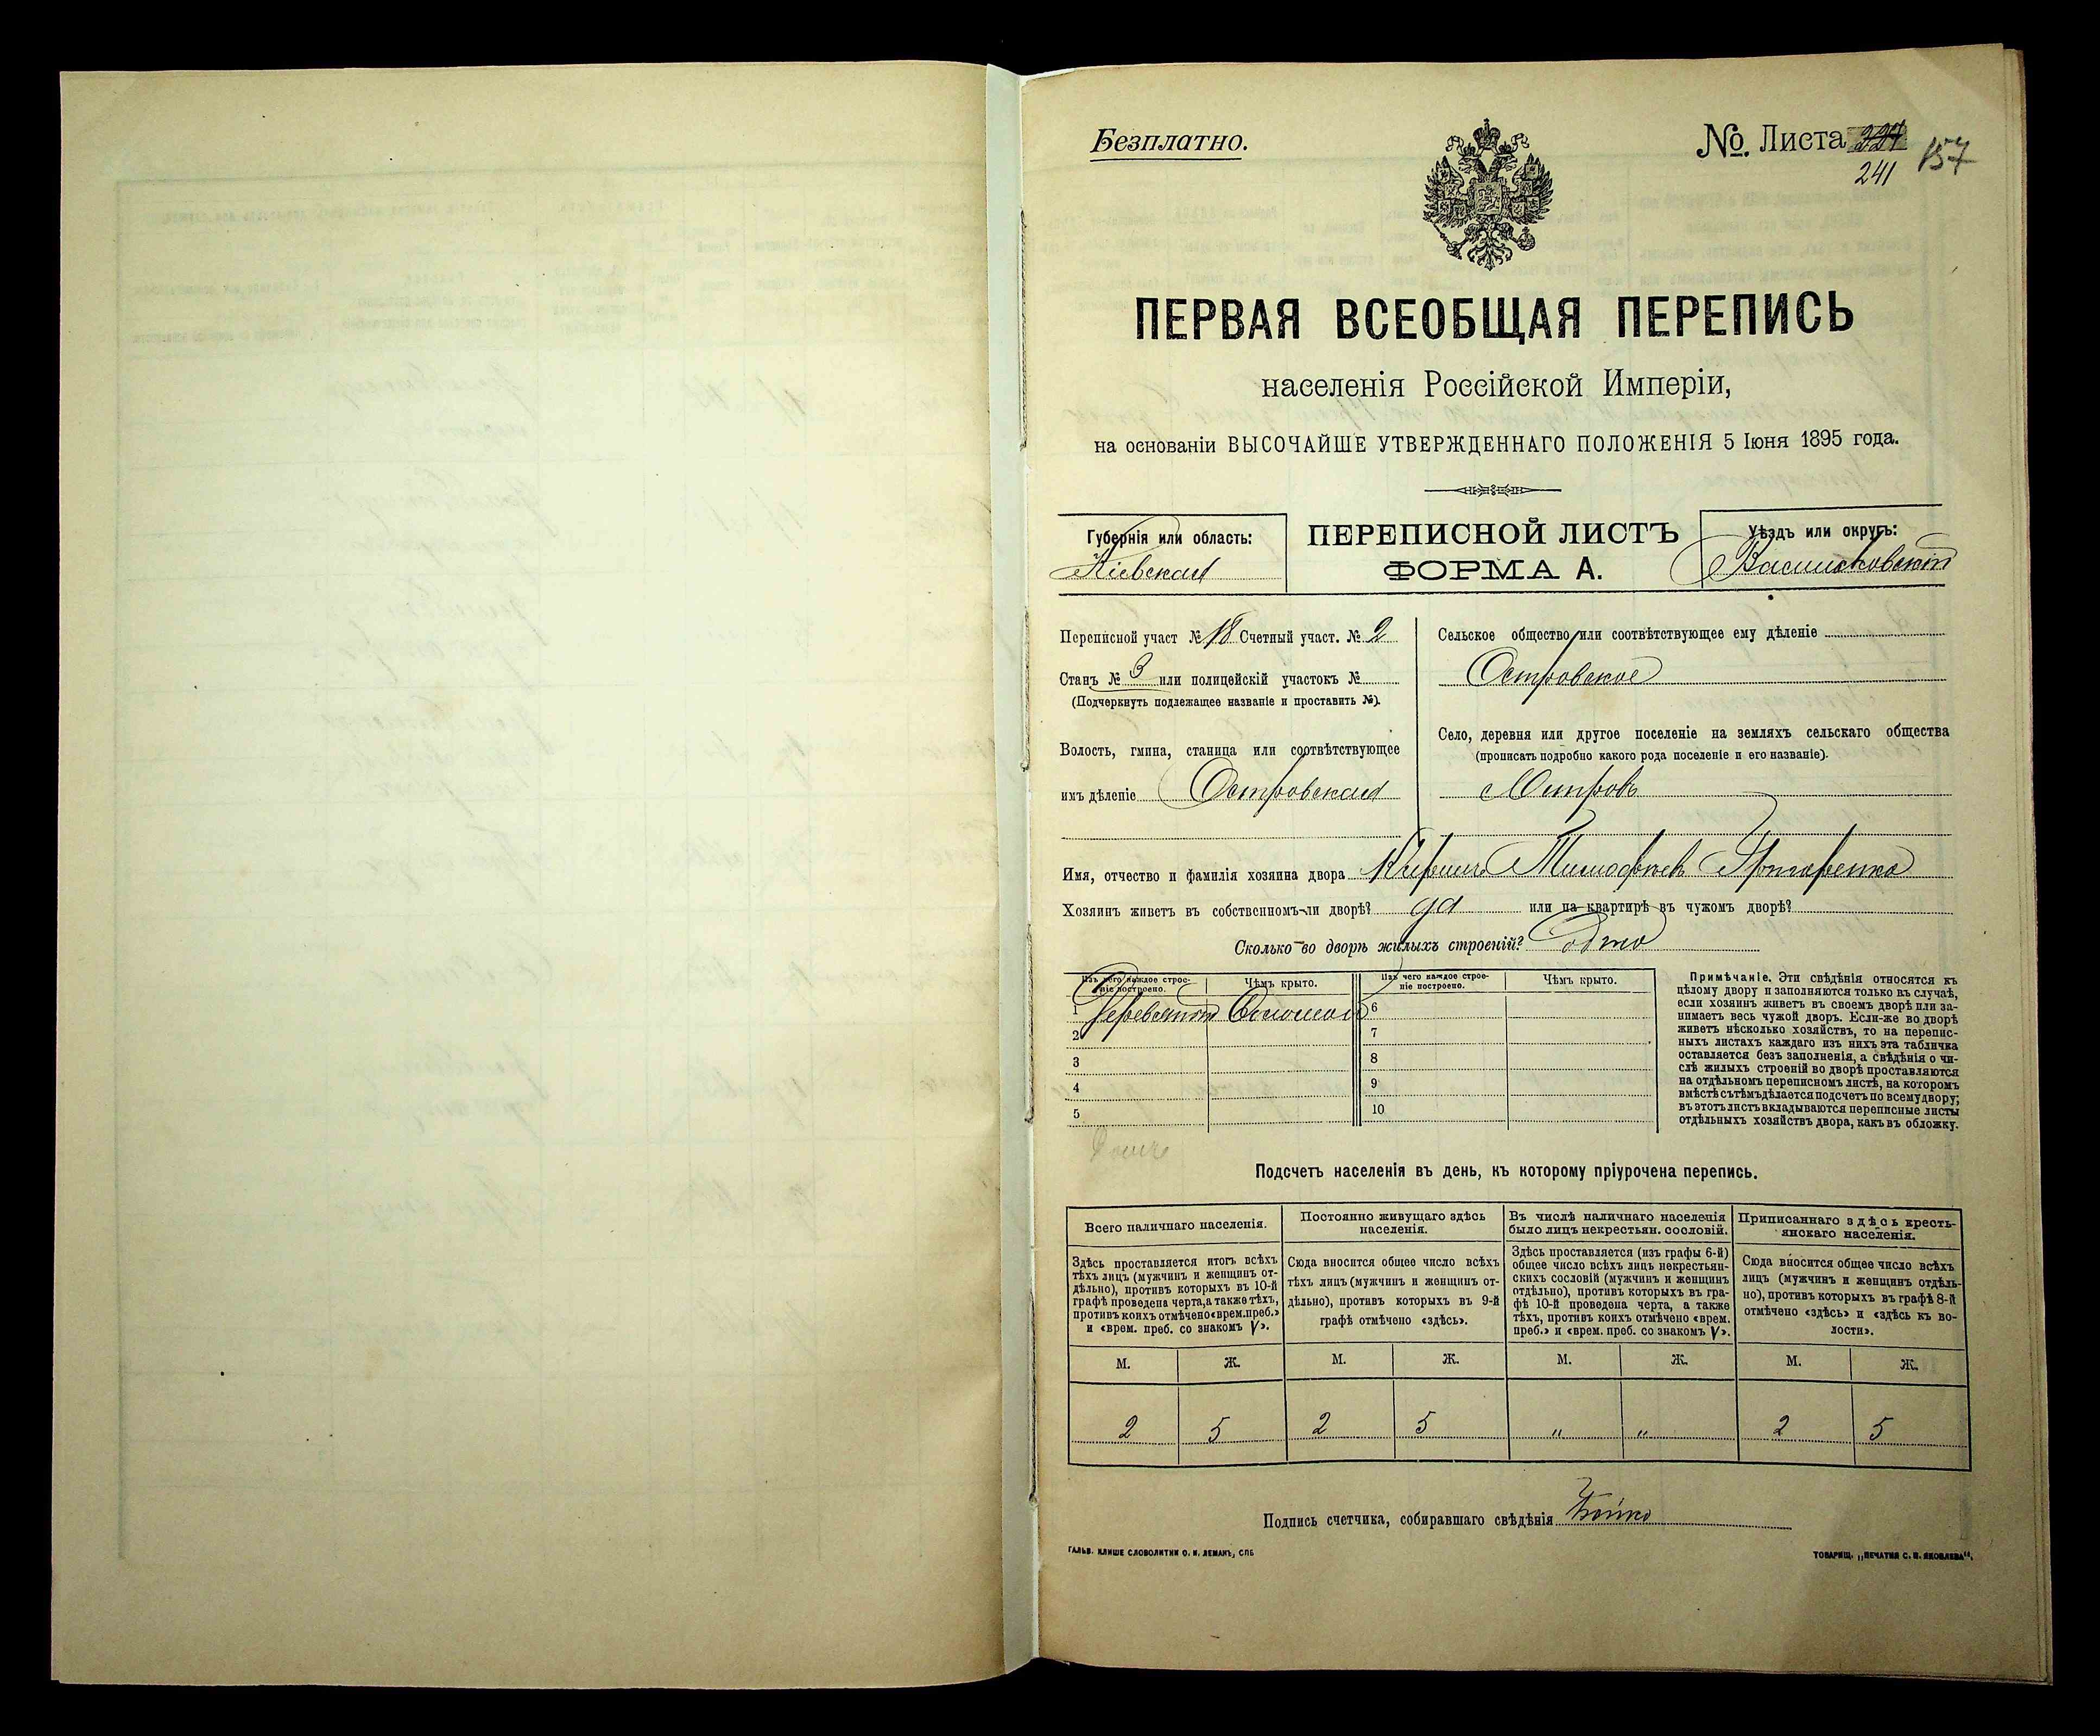 Безплатно.
№. Листа 227
241
157
ПЕРВАЯ ВСЕОБЩАЯ ПЕРЕПИСЬ
населенія Россійской Имперіи,
на основаніи ВЫСОЧАЙШЕ УТВЕРЖДЕННАГО ПОЛОЖЕНІЯ 5 Іюня 1895 года.
Губернія или область:
Кіевская
ПЕРЕПИСНОЙ ЛИСТЪ
ФОРМА А.
Уѣздъ или округъ:
Васильковскій
Переписной участ № 18 Счетный участ. № 2
Станъ № 3 или полицейскій участокъ №
(Подчеркнуть подлежащее названіе и проставить №).
Волость, гмина, станица или соотвѣтствующее
имъ дѣленіе Островская
Сельское общество или соотвѣтствующее ему дѣленіе
Островское
Село, деревня или другое поселеніе на земляхъ сельскаго общества
(прописать подробно какого рода поселеніе и его названіе).
Островъ
Имя, отчество и фамилія хозяина двора Тимофѣевъ
Хозяинъ живетъ въ собственномъ-ли дворѣ? да или на квартирѣ въ чужомъ дворѣ?
Сколько во дворѣ жилыхъ строеній? Одно
Изъ чего каждое строе-
ніе построено.
Чѣмъ крыто.
Изъ чего каждое строе-
ніе построено.
Чѣмъ крыто.
1 Соломой 6
2 7
3 8
4 9
5 10
Примѣчаніе. Эти свѣдѣнія относятся къ
цѣлому двору и заполняются только въ случаѣ,
если хозяинъ живетъ въ своемъ дворѣ или за-
нимаетъ весь чужой дворъ. Если-же во дворѣ
живетъ нѣсколько хозяйствъ, то на перепис-
ныхъ листахъ каждаго изъ нихъ эта табличка
оставляется безъ заполненія, а свѣдѣнія о чи-
слѣ жилыхъ строеній во дворѣ проставляются
на отдѣльномъ переписномъ листѣ, на которомъ
вмѣстѣ съ тѣмъ дѣлается подсчетъ по всему двору;
въ этотъ листъ вкладываются переписные листы
отдѣльныхъ хозяйствъ двора, какъ въ обложку.
Подсчетъ населенія въ день, къ которому пріурочена перепись.
Всего наличнаго населенія.
Здѣсь проставляется итогъ всѣхъ
тѣхъ лицъ (мужчинъ и женщинъ от-
дѣльно), противъ которыхъ въ 10-й
графѣ проведена черта, а также тѣхъ,
противъ коихъ отмѣчено «врем. преб.»
и «врем. преб. со знакомъ V».
Постоянно живущаго здѣсь
населенія.
Сюда вносится общее число всѣхъ
тѣхъ лицъ (мужчинъ и женщинъ от-
дѣльно), противъ которыхъ въ 9-й
графѣ отмѣчено «здѣсь».
Въ числѣ наличнаго населенія
было лицъ некрестьян. сословій.
Здѣсь проставляется (изъ графы 6-й)
общее число всѣхъ лицъ некрестьян-
скихъ сословій (мужчинъ и женщинъ
отдѣльно), противъ которыхъ въ гра-
фѣ 10-й проведена черта, а также
тѣхъ, противъ коихъ отмѣчено «врем.
преб.» и «врем. преб. со знакомъ V».
Приписаннаго здѣсь кресть-
янскаго населенія.
Сюда вносится общее число всѣхъ
лицъ (мужчинъ и женщинъ отдѣль-
но), противъ которыхъ въ графѣ 8-й
отмѣчено «здѣсь» и «здѣсь къ во-
лости».
М. Ж. М. Ж. М. Ж. М. Ж.
2 5 2 5 " " 2 5
Подпись счетчика, собиравшаго свѣдѣнія Бойко
ГАЛЬВ. КЛИШЕ СЛОВОЛИТНИ О. И. ЛЕМАНЪ, СПБ
ТОВАРИЩ. „ПЕЧАТНЯ С. П. ЯКОВЛЕВА“.